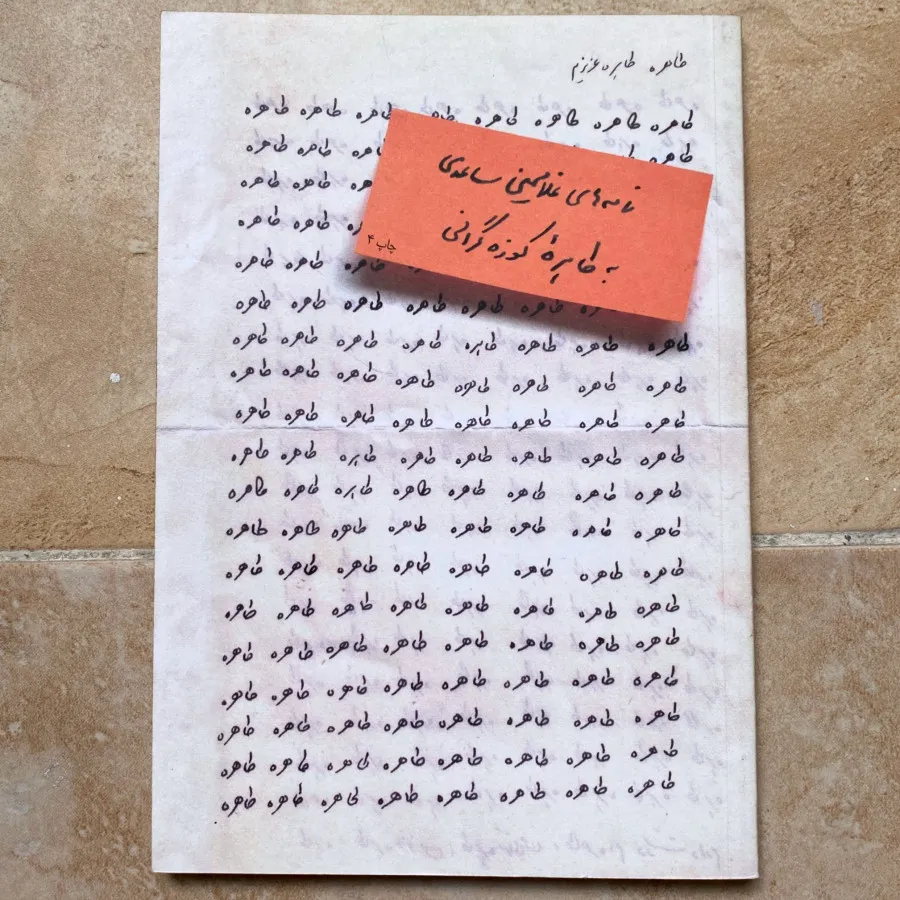 طاهره طاهره عزیزم
طاهره طاهره طاهره طاهره طاهره طاهره طاهره طاهره
طاهره طاهره طاهره طاهره
طاهره طاهره
طاهره طاهره
طاهره طاهره طاهره
طاهره طاهره طاهره طاهره طاهره طاهره
طاهره طاهره طاهره طاهره طاهره طاهره طاهره طاهره
طاهره طاهره طاهره طاهره طاهره طاهره طاهره طاهره
طاهره طاهره طاهره طاهره طاهره طاهره طاهره طاهره
طاهره طاهره طاهره طاهره طاهره طاهره طاهره طاهره
طاهره طاهره طاهره طاهره طاهره طاهره طاهره طاهره
طاهره طاهره طاهره طاهره طاهره طاهره طاهره طاهره
طاهره طاهره طاهره طاهره طاهره طاهره طاهره طاهره
طاهره طاهره طاهره طاهره طاهره طاهره طاهره طاهره
طاهره طاهره طاهره طاهره طاهره طاهره طاهره طاهره
طاهره طاهره طاهره طاهره طاهره طاهره طاهره طاهره
طاهره طاهره طاهره طاهره طاهره طاهره طاهره طاهره
طاهره طاهره طاهره طاهره طاهره طاهره طاهره طاهره
طاهره طاهره طاهره طاهره طاهره طاهره طاهره طاهره
نامه‌های غلامحسین ساعدی
به طاهرهٔ کوزه گرانی
چاپ ۴